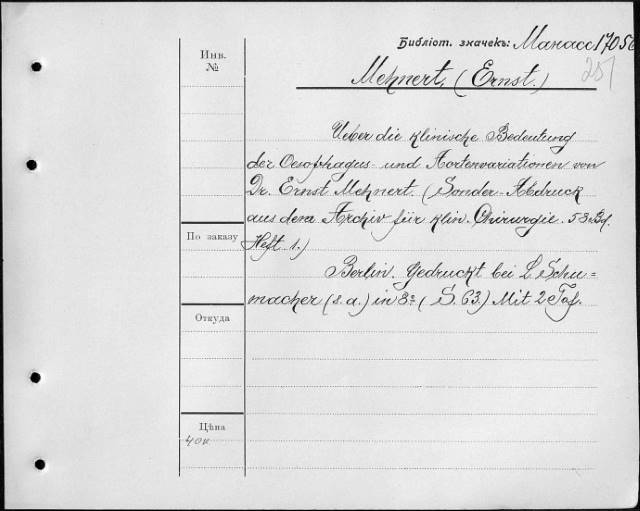 Библіот. значекъ: Манасс 17056
251
Инв.
№
Mehnert, (Ernst.)
Ueber die klinische Bedeutung
der Oesophagus- und Aortenvariationen von
Dr. Ernst Mehnert. (Sonder-Abdruck
aus dem Archiv für klin. Chirurgie. 58 Bd.
Heft 1.)
Berlin. Gedruckt bei L. Schu=
macher (s.a.) in 8º (S. 63.) Mit 2 Taf.
По заказу
Откуда
Цѣна
40к